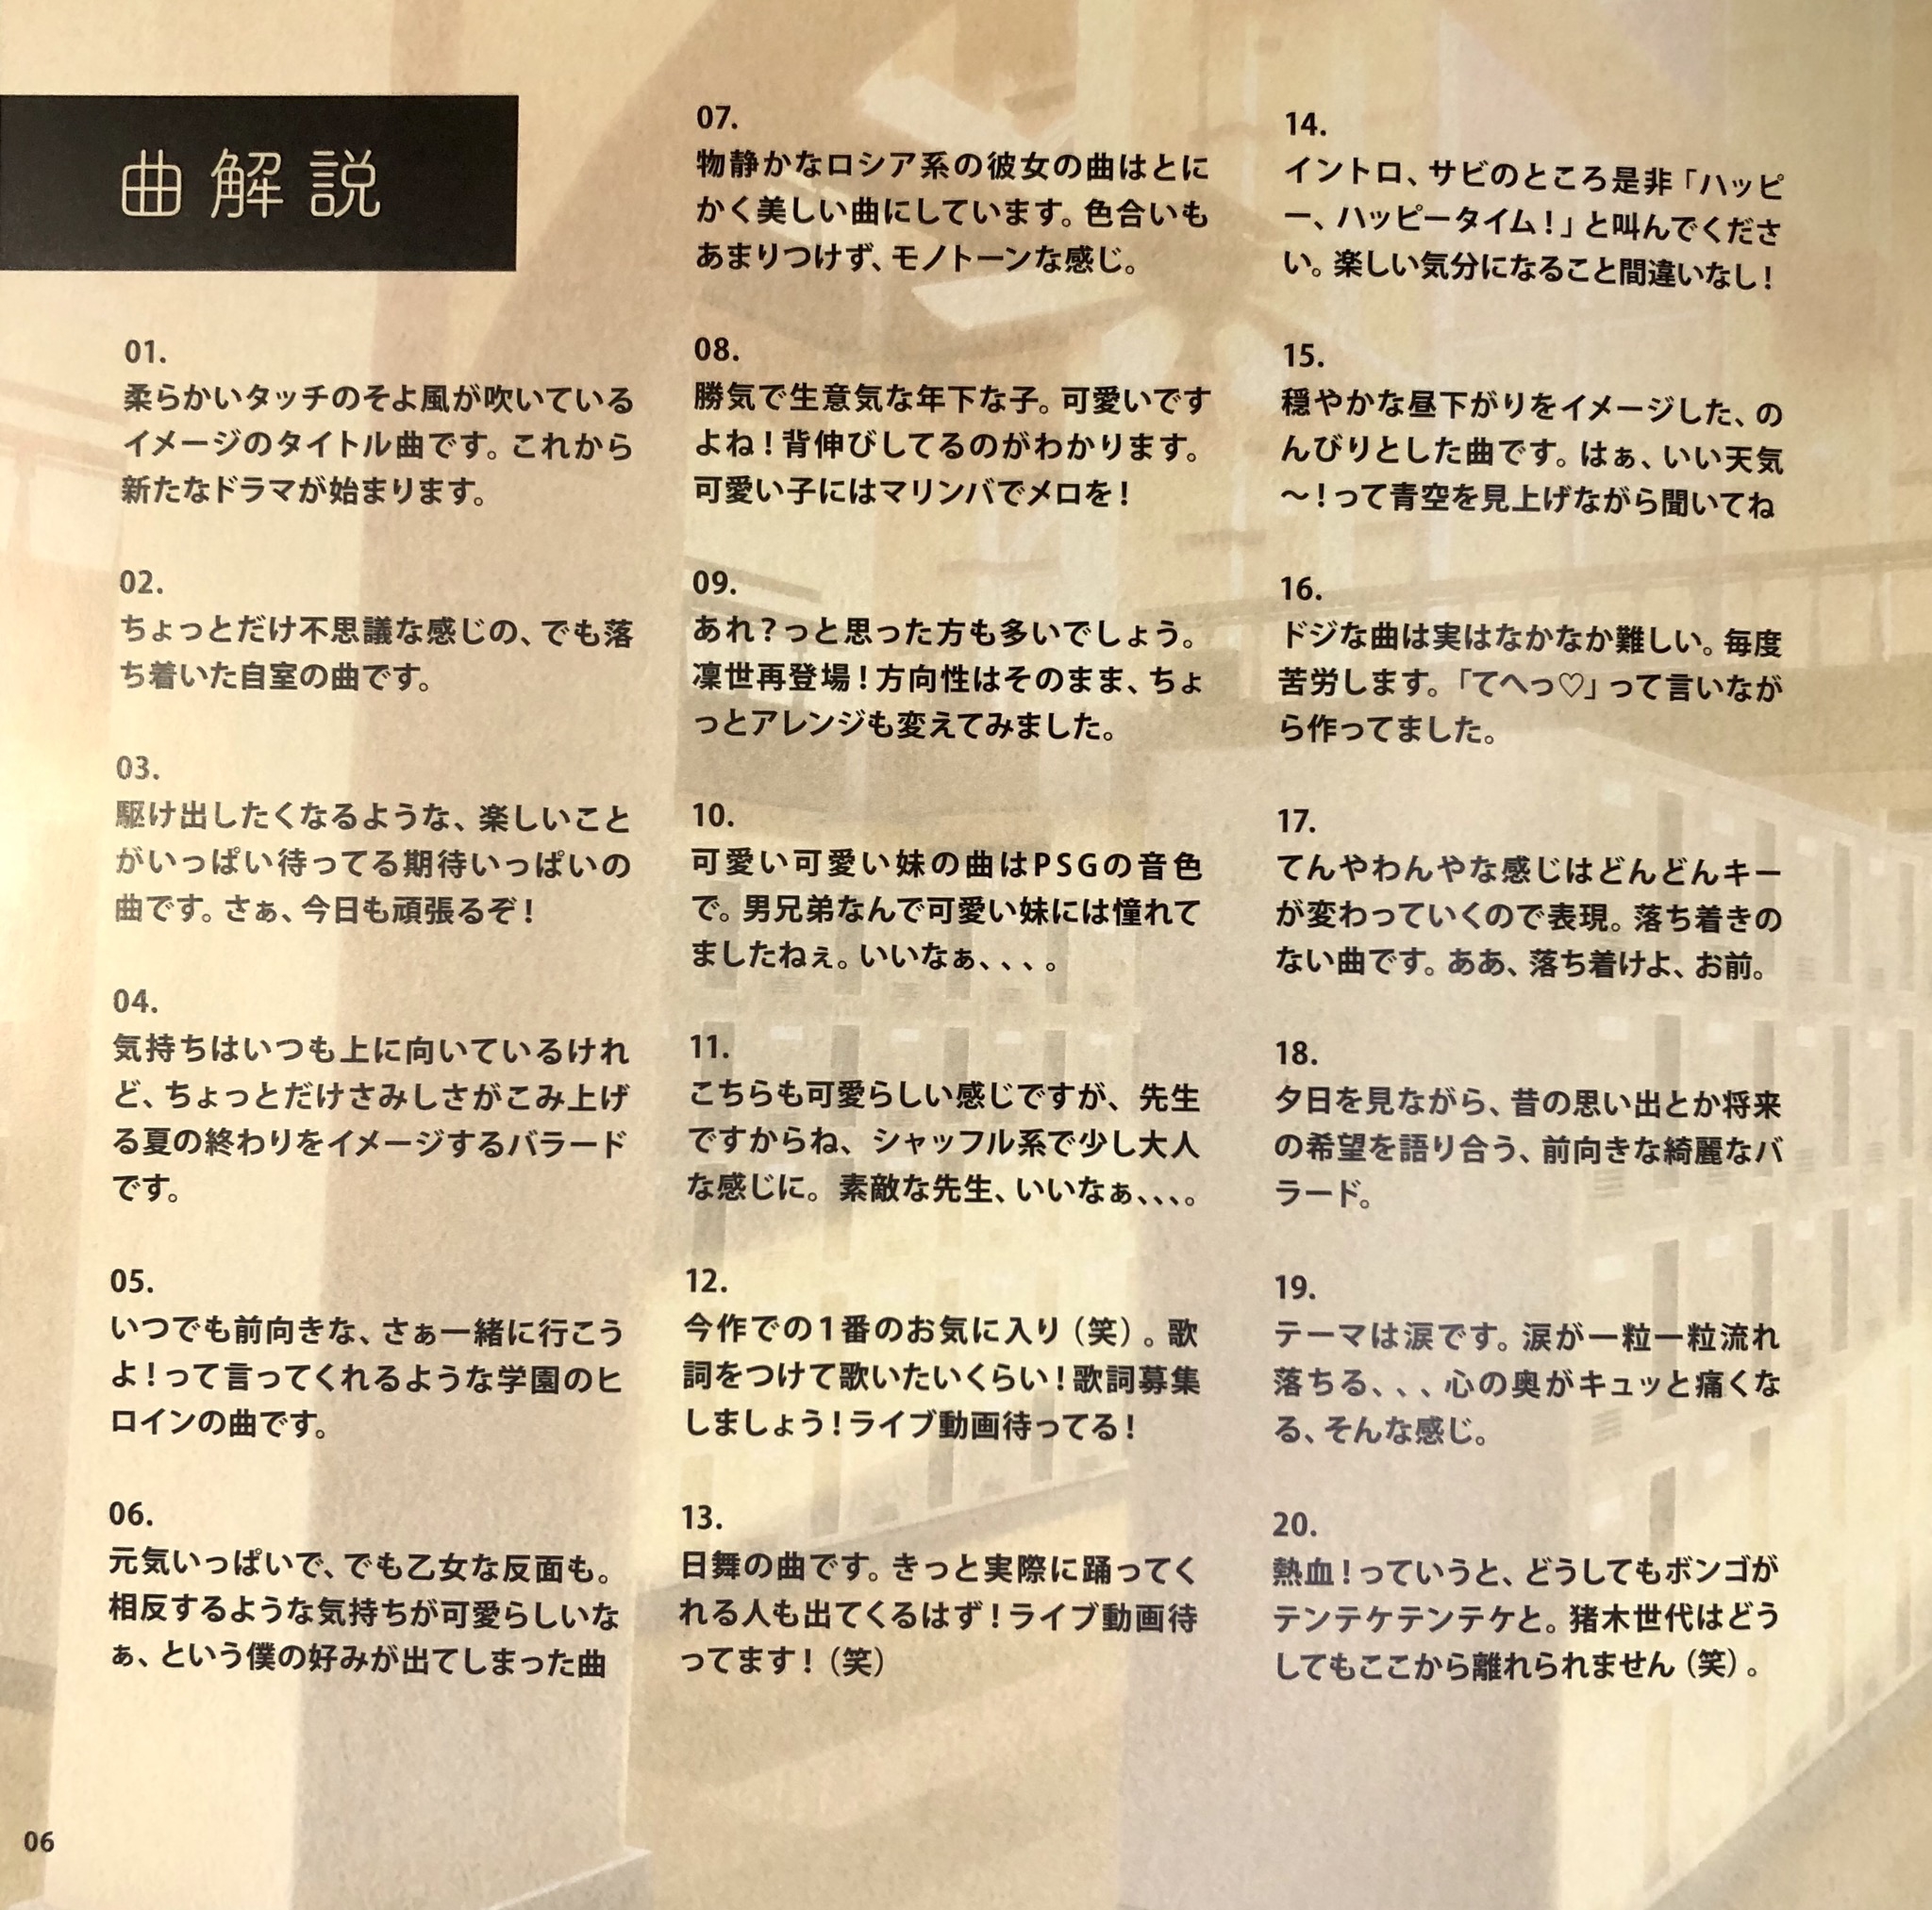 曲解説
01.
柔らかいタッチのそよ風が吹いている
イメージのタイトル曲です。これから
新たなドラマが始まります。
02.
ちょっとだけ不思議な感じの、でも落
ち着いた自室の曲です。
03.
駆け出したくなるような、楽しいこと
がいっぱい待ってる期待いっぱいの
曲です。さぁ、今日も頑張るぞ！
04.
気持ちはいつも上に向いているけれ
ど、ちょっとだけさみしさがこみ上げ
る夏の終わりをイメージするバラード
です。
05.
いつでも前向きな、さぁ一緒に行こう
よ！って言ってくれるような学園のヒ
ロインの曲です。
06.
元気いっぱいで、でも乙女な反面も。
相反するような気持ちが可愛らしいな
ぁ、という僕の好みが出てしまった曲
07.
物静かなロシア系の彼女の曲はとに
かく美しい曲にしています。色合いも
あまりつけず、モノトーンな感じ。
08.
勝気で生意気な年下な子。可愛いです
よね！背伸びしてるのがわかります。
可愛い子にはマリンバでメロを！
09.
あれ？っと思った方も多いでしょう。
凜世再登場！方向性はそのまま、ちょ
っとアレンジも変えてみました。
10.
可愛い可愛い妹の曲はPSGの音色
で。男兄弟なんで可愛い妹には憧れて
ましたねぇ。いいなぁ、、、。
11.
こちらも可愛らしい感じですが、先生
ですからね、シャッフル系で少し大人
な感じに。素敵な先生、いいなぁ、、、。
12.
今作での1番のお気に入り（笑）。歌
詞をつけて歌いたいくらい！歌詞募集
しましょう！ライブ動画待ってる！
13.
日舞の曲です。きっと実際に踊ってく
れる人も出てくるはず！ライブ動画待
ってます！（笑）
14.
イントロ、サビのところ是非「ハッピ
ー、ハッピータイム！」と叫んでくださ
い。楽しい気分になること間違いなし！
15.
穏やかな昼下がりをイメージした、の
んびりとした曲です。はぁ、いい天気
〜！って青空を見上げながら聞いてね
16.
ドジな曲は実はなかなか難しい。毎度
苦労します。「てへっ♡」って言いなが
ら作ってました。
17.
てんやわんやな感じはどんどんキー
が変わっていくので表現。落ち着きの
ない曲です。ああ、落ち着けよ、お前。
18.
夕日を見ながら、昔の思い出とか将来
の希望を語り合う、前向きな綺麗なバ
ラード。
19.
テーマは涙です。涙が一粒一粒流れ
落ちる、、、心の奥がキュッと痛くな
る、そんな感じ。
20.
熱血！っていうと、どうしてもボンゴが
テンテケテンテケと。猪木世代はどう
してもここから離れられません（笑）。
06